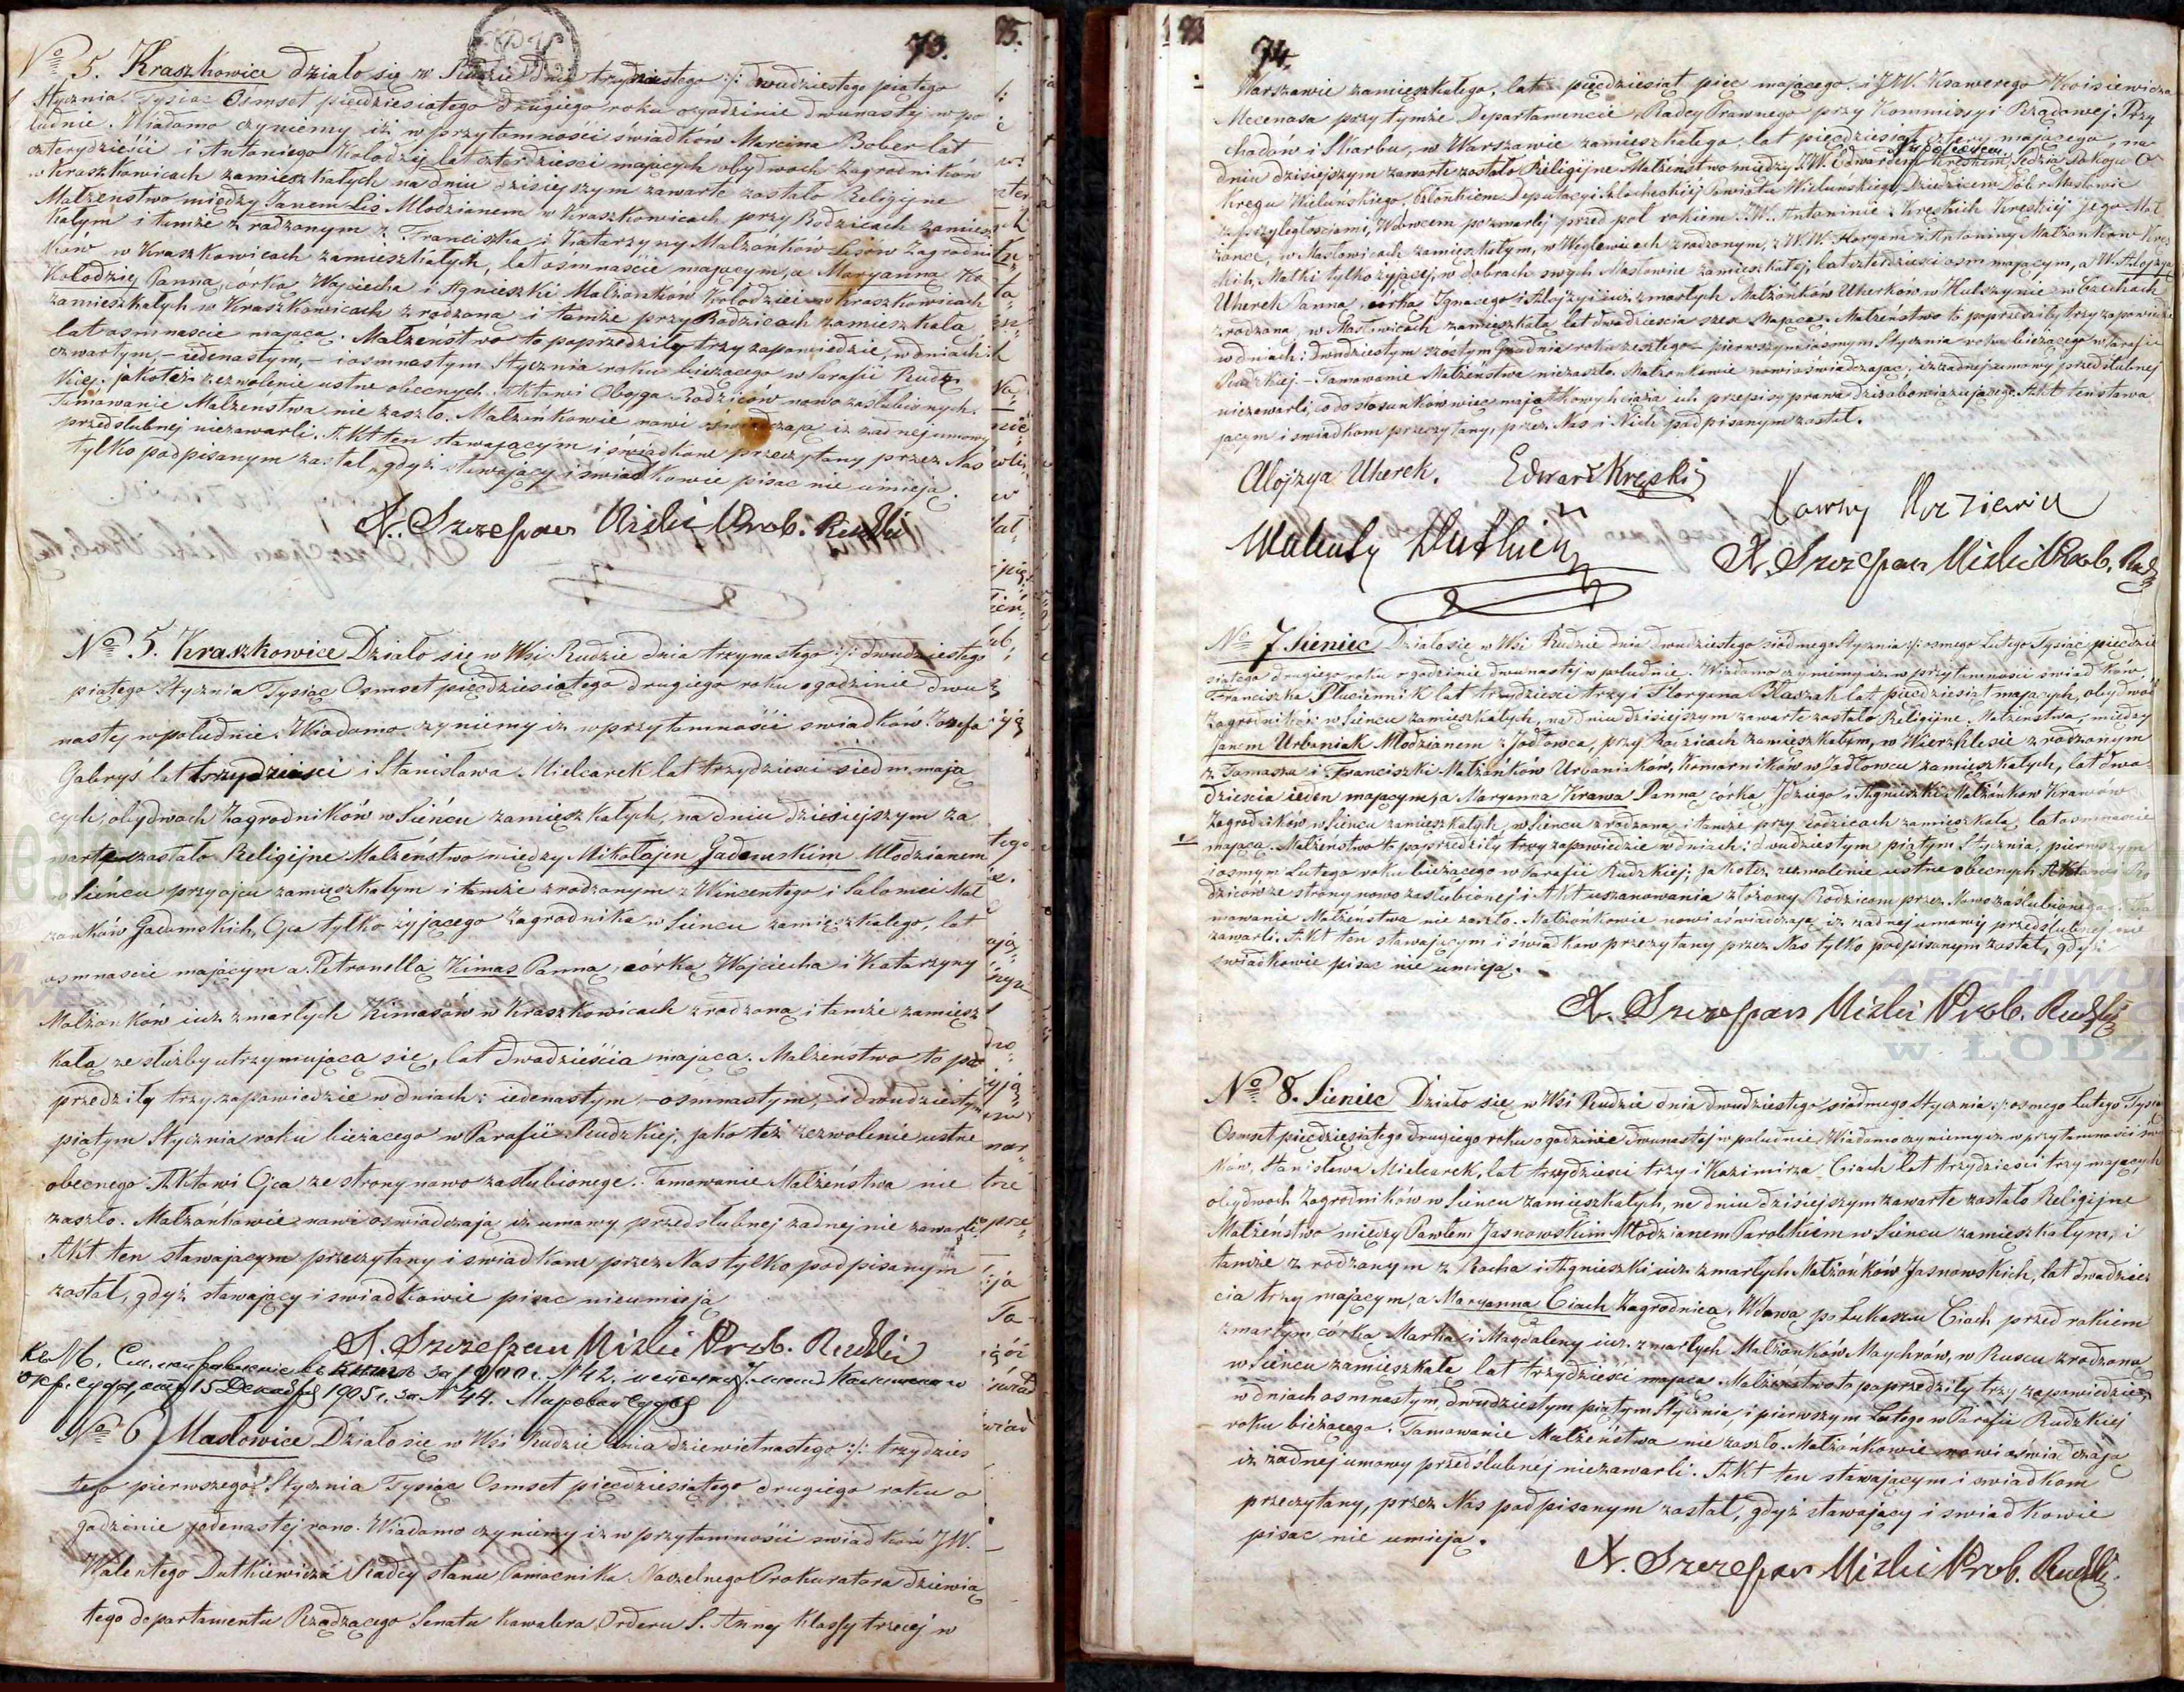 73.
№ 5. Kraszkowice działo się w Rudzie dnia trzynastego :/: dwudziestego piątego
Stycznia Tysiąc Osmset pięcdziesiątego drugiego roku o godzinie dwunastej w po
ludnie. Wiadomo czyniemy iż w przytomności swiadków Marcina Bober lat
czterydzieści i Antoniego Kołodziej lat czterdziesci mających obydwoch Zagrodników
w Kraszkowicach zamieszkałych na dniu dzisiejszym zawarte zostało Religijne
Małżenstwo między Janem Lis Młodzianem w Kraszkowicach przy Rodzicach zamiesz
kałym i tamże zrodzonym z Franciszka i Katarzyny Małżonków Lisów Zagrodni
ków w Kraszkowicach zamieszkałych, lat ośmnaście mającym, a Maryanną Ko
łodziej Panną, córką Wojciecha i Agnieszki Małżonków Kołodziei w Kraszkowicach
zamieszkałych w Kraszkowicach zrodzoną i tamże przy Rodzicach zamieszkałą
lat osmnascie mającą. Małżeństwo to poprzedziły trzy zapowiedzie, w dniach:
czwartym, – iedenastym, – i osmnastym Stycznia roku bieżącego w Parafii Rudz
kiej: jako też zezwolenie ustne obecnych Aktowi Obojga Rodziców nowo zaslubionych.
Tamowanie Małżeństwa nie zaszło. Małżonkowie nowi oswiadczają iż żadnej umowy
przedslubnej niezawarli. Akt ten stawającym i świadkom przeczytany przez Nas
tylko podpisanym został, gdyż stawający i swiadkowie pisac nie umieją.
X. Szczepan Mizki Prob. Rudzki
№ 5. Kraszkowice Działo się w Wsi Rudzie dnia trzynastego :/: dwudziestego
piątego Stycznia Tysiąc Osmset pięcdziesiątego drugiego roku o godzinie dwu
nastej w południe. Wiadomo czyniemy iż w przytomności swiadków Jozefa
Gabryś lat trzydziesci i Stanisława Mielcarek lat trzydziesci siedm mają
cych, obydwoch Zagrodników w Sieńcu zamieszkałych, na dniu dzisiejszym za
warte zostało Religijne Małżeństwo między Mikołajem Gadomskim Młodzianem
w Sieńcu przy ojcu zamieszkałym i tamże zrodzonym z Wincentego i Salomei Mał
żonków Gadomskich, Ojca tylko żyjącego Zagrodnika w Sieńcu zamieszkałego, lat
osmnascie mającym a Petronellą Kimas Panną, córką Wojciecha i Katarzyny
Małżonków iuż zmarłych Kimasów w Kraszkowicach zrodzoną i tamże zamiesz
kałą ze służby utrzymującą się, lat dwadzieścia mającą. Małżeństwo to po
przedziły trzy zapowiedzie w dniach: iedenastym, – osmnastym, – i dwudziestym
piątym Stycznia roku bieżącego w Parafii Rudzkiej, jako też zezwolenie ustne
obecnego Aktowi Ojca ze strony nowo zaslubionego. Tamowanie Małżeństwa nie
zaszło. Małżonkowie nowi oswiadczają iż umowy przedslubnej żadnej nie zawarli.
Akt ten stawającym przeczytany i swiadkom przez Nas tylko podpisanym
został, gdyż stawający i swiadkowie pisac nieumieją
X. Szczepan Mizki Prob. Rudzki
за 1900 г. № 42,
15 Декабря 1905 г. за № 44.
№ 6 Masłowice Działo się w Wsi Rudzie dnia dziewiętnastego :/: trzydzies
tego pierwszego Stycznia Tysiąc Osmset pięcdziesiątego drugiego roku o
godzinie jedenastej rano. Wiadomo czyniemy iż w przytomności swiadków JW.
Walentego Dutkiewicza Radcy stanu Pomocnika Naczelnego Prokuratora dziewią
tego departamentu Rządzącego Senatu Kawalera Orderu S. Anny Klassy trzeciej w
74.
Warszawie zamieszkałego, lat pięcdziesiąt pięc mającego, i JW. Ksawerego
Mecenasa przy tymże Departamencie, Radcy Prawnego przy Kommissyi Rządowej Przy
chodów i Skarbu, w Warszawie zamieszkałego, lat pięcdziesiąt cztery mającego, na
dniu dzisiejszym zawarte zostało Religijne Małżenstwo między JW. Edwardem Kręskim Sędzią Pokoju O
kręgu Wieluńskiego, Członkiem Deputacyi Szlacheckiej Powiatu Wieluńskiego, Dziedzicem Dóbr Masłowic
z przyległosciami, Wdowcem po zmarłej przed poł rokiem W. Antoninie z Kręskich Kręskiej jego Mał
żonce, w Masłowicach zamieszkałym, zrodzonym, z WW. Floryana i Antoniny Małżonków Kręs
kich, Matki tylko żyjącej, w dobrach swych Masłowice zamieszkałej, lat czterdziesci osm mającym, a W. Alojzyą
Uherek Panną, córką Ignacego i Alojzyi iuż zmarłych Małżonków Uherkow w Hulszynie w Czechach
zrodzoną, w Masłowicach zamieszkałą lat dwadziescia szesc mającą. Małżenstwo to poprzedziły trzy zapowiedzie
w dniach: dwudziestym szóstym Grudnia roku zeszłego – pierwszym i osmym Stycznia roku bieżącego w Parafii
Rudzkiej. – Tamowanie Małżeństwa niezaszło. Małżonkowie nowi oswiadczają, iż żadnej umowy przedslubnej
niezawarli, co do stosunków więc majątkowych wiążą ich przepisy prawa dziś obowiązującego. Akt ten stawa
jącym i swiadkom przeczytany, przez Nas i Nich podpisanym został.
Alojzya Uherek. Edward Kręski
X. Szczepan Mizki Prob. Rudz
№ 7 Sieniec Działo się w Wsi Rudzie dnia dwudziestego siodmego Stycznia :/: osmego Lutego Tysiąc pięcdzie
siątego drugiego roku o godzinie dwunastej w południe. Wiadomo czynimy iż w przytomnosci swiadków
Franciszka Pluciennik lat trzydziesci trzy i Floryana Błaszak lat pięcdziesiąt mających, obydwóch
Zagrodników w Sieńcu zamieszkałych, na dniu dzisiejszym zawarte zostało Religijne Małżenstwo, między
Janem Urbaniak Młodzianem z Jodłowca, przy Rodzicach zamieszkałym, w Wierzchlesie zrodzonym
z Tomasza i Franciszki Małżonków Urbaniaków, Komorników w Jodłowcu zamieszkałych, lat dwa
dziescia ieden mającym, a Maryanną Krawa Panną córką Idziego i Agnieszki Małżonkow Krawów
Zagrodników w Sieńcu zamieszkałych w Sieńcu zrodzoną i tamże przy rodzicach zamieszkałą, lat osmnascie
mającą. Małżenstwo to poprzedziły trzy zapowiedzie w dniach: dwudziestym piątym Stycznia, pierwszym
i osmym Lutego roku bieżącego w Parafii Rudzkiej; jako też zezwolenie ustne obecnych Aktowi Ro
dziców ze strony nowo zaslubionej i Akt uszanowania złożony Rodzicom przez Nowozaślubionego. Ta
mowanie Małżenstwa nie zaszło. Małżonkowie nowi oświadczają iż żadnej umowy przedślubnej nie
zawarli. Akt ten stawającym i świadkom przeczytany przez Nas tylko podpisanym został, gdyż
swiadkowie pisac nie umieją.
X. Szczepan Mizki Prob. Rudzki
№ 8. Sieniec Działo się w Wsi Rudzie dnia dwudziestego siodmego Stycznia :/: osmego Lutego Tysiąc
Osmset pięcdziesiątego drugiego roku o godzinie dwunastej w południe. Wiadomo czyniemy iż w przytomności swia
dków, Stanisława Mielcarek, lat trzydziesci trzy i Kazimirza Ciach lat trzydzieści trzy mających
obydwoch Zagrodników w Sieńcu zamieszkałych, na dniu dzisiejszym zawarte zostało Religijne
Małżeństwo między Pawłem Jasnowskim Młodzianem Parobkiem w Sieńcu zamieszkałym, i
tamże zrodzonym z Rocha i Agnieszki iuż zmarłych Małżonków Jasnowskich, lat dwadzies
cia trzy mającym, a Maryanną Ciach Zagrodnicą, Wdową po Łukaszu Ciach przed rokiem
zmarłym córką Marka i Magdaleny iuż zmarłych Małżonków Maychrów, w Ruscu zrodzoną
w Sieńcu zamieszkałą lat trzydzieści mającą. Małżenstwo to poprzedziły trzy zapowiedzie
w dniach osmnastym, dwudziestym piątym Stycznia i pierwszym Lutego w Parafii Rudzkiej
roku bieżącego. Tamowanie Małżeństwa nie zaszło. Małżonkowie nowi oświadczają
iż żadnej umowy przedślubnej niezawarli. Akt ten stawającym i swiadkom
przeczytany, przez Nas podpisanym został, gdyż stawający i swiadkowie
pisac nie umieją.
X. Szczepan Mizki Prob. Rudzki.
ARCHIWUM
w ŁODZI